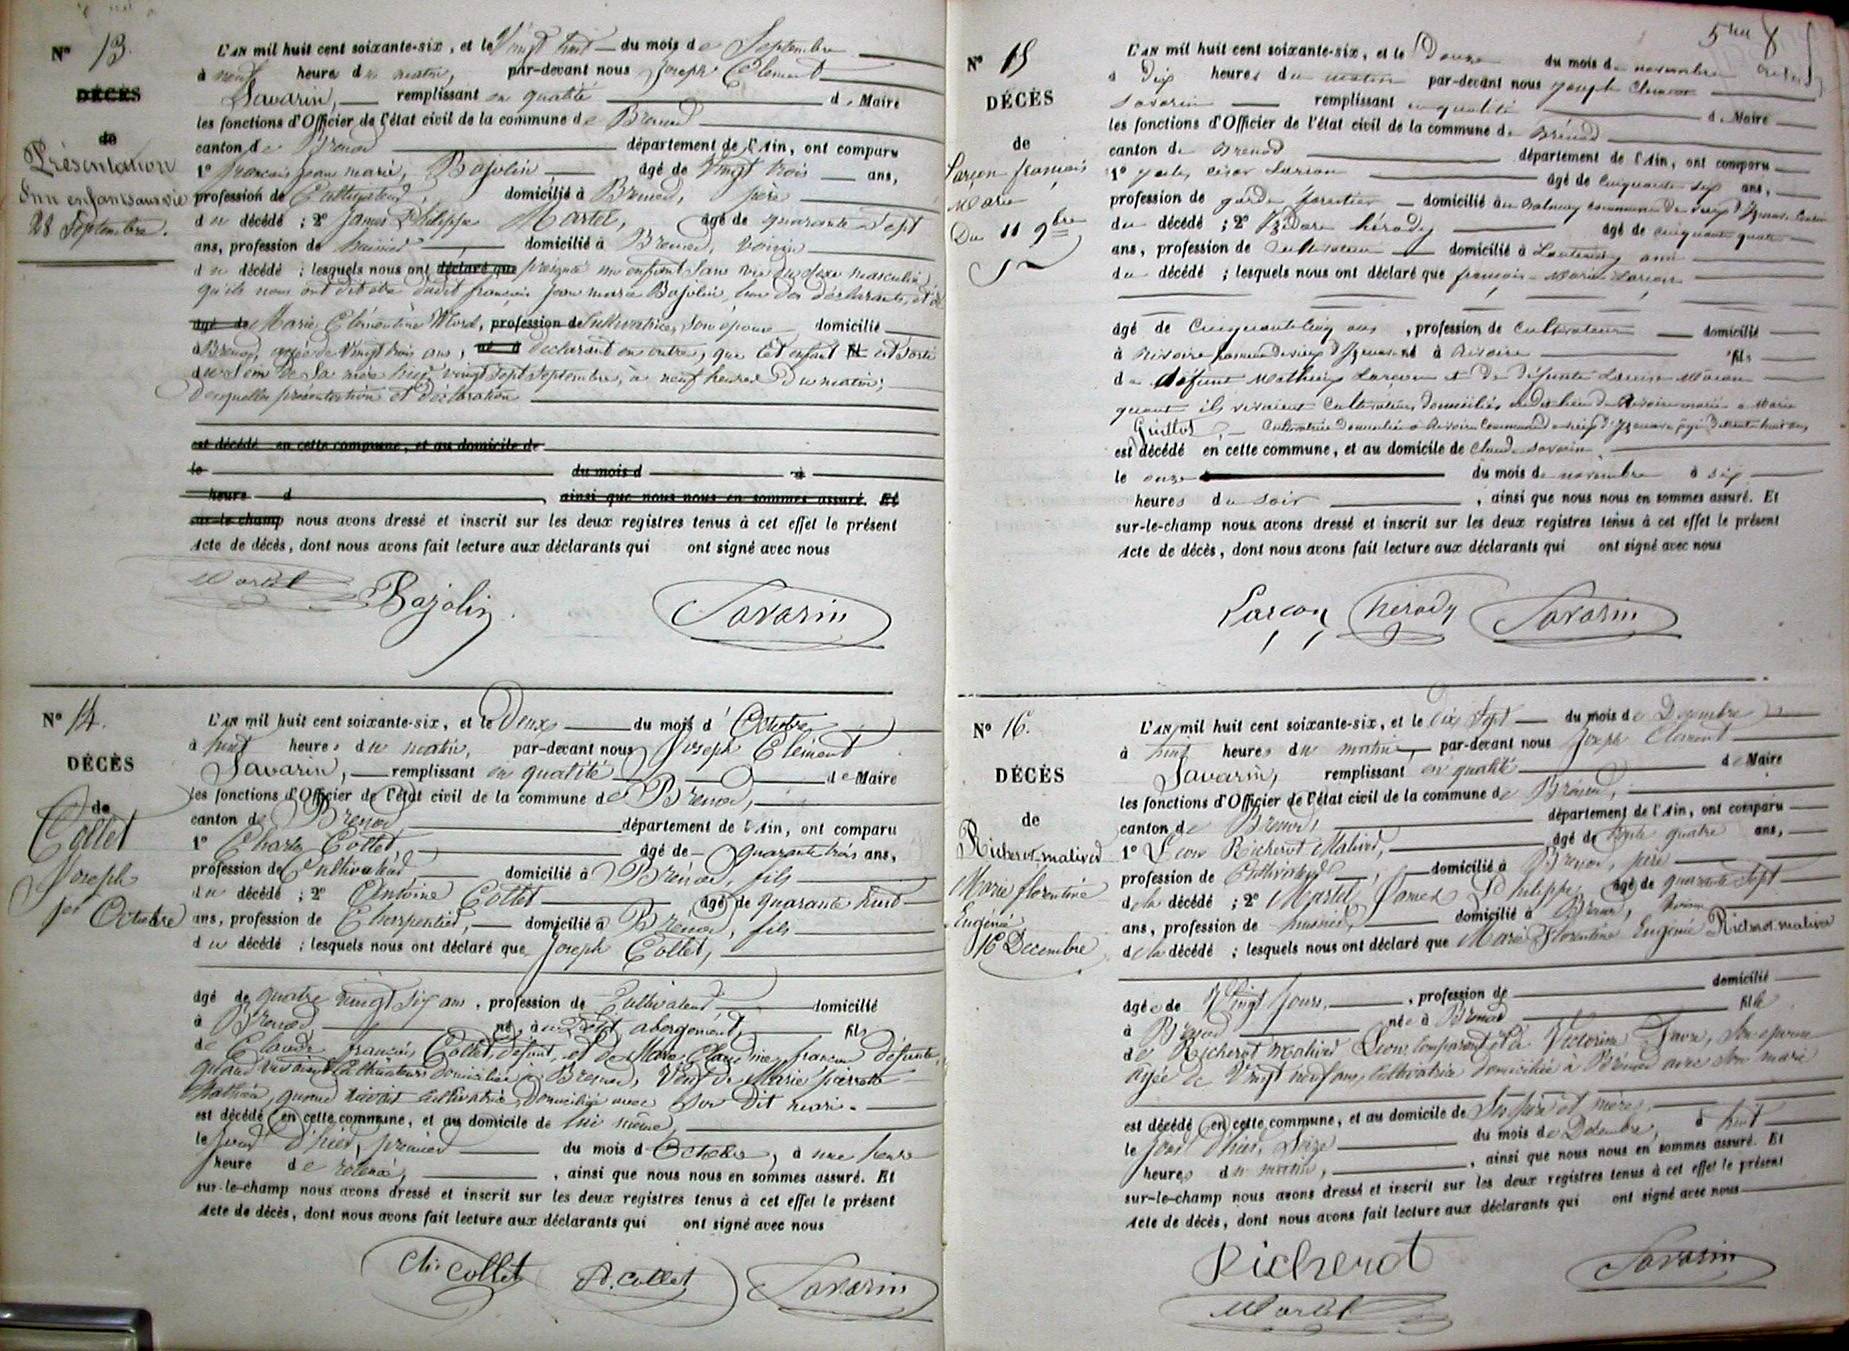 N° 13.
DÉCÈS
de
Présentation
d'un enfant sans vie
28 Septembre.
L'AN mil huit cent soixante-six, et le Vingt huit du mois de Septembre
à neuf heure du matin, par-devant nous Joseph Clément
Savarin, remplissant en qualité de Maire
les fonctions d'Officier de l'état civil de la commune de Brenod
canton de Brenod département de l'Ain, ont comparu
1° françois jean marie, Bajolin âgé de Vingt trois ans,
profession de Cultivateur, domicilié à Brenod, père
du décédé ; 2° James Philippe Martel, âgé de quarante Sept
ans, profession de huissier domicilié à Brenod, voisin
du décédé ; lesquels nous ont déclaré que présenté un enfant Sans vie du sexe masculin,
qu'ils nous ont dit être dudit françois jean marie Bajolin, l'un des déclarants, et de
âgé de Marie Clémentine profession de Cultivatrice, Son épouse domicilié
à Brenod, agée de Vingt trois ans, né à déclarant en outre, que Cet enfant fil est sorti
du Sein de Sa mère hier vingt sept Septembre, à neuf heures du matin;
Desquelles présentation et déclaration
est décédé en cette commune, et au domicile de
le du mois d à
heure d ainsi que nous nous en sommes assuré. Et
sur-le-champ nous avons dressé et inscrit sur les deux registres tenus à cet effet le présent
Acte de décès, dont nous avons fait lecture aux déclarants qui ont signé avec nous
Martel Bajolin Savarin
N° 14.
DÉCÈS
de
Collet
Joseph
1er Octobre
L'AN mil huit cent soixante-six, et le Deux du mois d'Octobre
à huit heures du matin, par-devant nous Joseph Clément
Savarin, remplissant en qualité de Maire
les fonctions d'Officier de l'état civil de la commune de Brenod,
canton de Brenod département de l'Ain, ont comparu
1° Charles Collet âgé de quarante trois ans,
profession de Cultivateur domicilié à Brénod, fils
du décédé ; 2° Antoine Collet âgé de quarante huit
ans, profession de Charpentier, domicilié à Brenod, fils
du décédé ; lesquels nous ont déclaré que Joseph Collet,
âgé de quatre vingt six ans, profession de Cultivateur, domicilié
à Brenod, né au Petit abergement, fils
de Claude françois Collet, défunt, et de Claudine françon défunte,
quand vivaient Cultivateurs domiciliés à Brenod, Veuf de Marie pierrette
quand vivait Cultivatrice, domiciliée avec Son Dit mari.
est décédé en cette commune, et au domicile de lui même,
le jour d'hier, premier du mois d'Octobre, à une heure
heure de relevée, ainsi que nous nous en sommes assuré. Et
sur-le-champ nous avons dressé et inscrit sur les deux registres tenus à cet effet le présent
Acte de décès, dont nous avons fait lecture aux déclarants qui ont signé avec nous
Ch. Collet A. Collet Savarin
5me
N° 15
DÉCÈS
de
Larçon françois
Marie
Du 11 9bre
L'AN mil huit cent soixante-six, et le Douze du mois de novembre
à Dix heures du matin par-devant nous joseph Clément
Savarin remplissant en qualité de Maire
les fonctions d'Officier de l'état civil de la commune de Brénod
canton de Brenod département de l'Ain, ont comparu
1° Larçon âgé de cinquante six ans,
profession de garde forestier domicilié au commune de vieux d'Izenave
du décédé ; 2° hérody âgé de cinquante quatre
ans, profession de Cultivateur domicilié à ami
du décédé ; lesquels nous ont déclaré que françois-Marie Larçon
âgé de Cinquante cinq ans, profession de Cultivateur domicilié
à Rivoire commune de vieux d'Izenave né à Rivoire fils
de défunt Mathieu Larçon et de défunte
quant ils vivaient Cultivateurs domiciliés audit lieu de Rivoire marié a Marie
Guillot, Cultivatrice domiciliée a Rivoire Commune de vieux d'Izenave agé de trente huit ans,
est décédé en cette commune, et au domicile de Claude Savarin
le onze du mois de novembre à six
heures du soir, ainsi que nous nous en sommes assuré. Et
sur-le-champ nous avons dressé et inscrit sur les deux registres tenus à cet effet le présent
Acte de décès, dont nous avons fait lecture aux déclarants qui ont signé avec nous
Larçon hérody Savarin
N° 16.
DÉCÈS
de
Richerot-matived
Marie florentine
Eugénie
16 Decembre
L'AN mil huit cent soixante-six, et le dix Sept du mois de Decembre
à huit heures du matin par-devant nous Joseph Clément
Savarin, remplissant en qualité de Maire
les fonctions d'Officier de l'état civil de la commune de Brénod,
canton de Brenod, département de l'Ain, ont comparu
1° Léon Richerot Matived, âgé de trente quatre ans,
profession de Cultivateur, domicilié à Brenod, père
de la décédé ; 2° Martel James Philippe, âgé de quarante Sept
ans, profession de huissier, domicilié à Brenod, Voisin
de la décédé ; lesquels nous ont déclaré que Marie Florentine Eugénie Richerot-matived
âgée de Vingt Jours, profession de domicilié
à Brenod née à Brenod fille
de Richerot Matived Léon, comparant et de Victorine Favre, Son épouse
agée de Vingt neuf ans, Cultivatrice domiciliée à Brénod avec Son mari
est décédé en cette commune, et au domicile de Ses père et mère,
le Jour d'hier, Seize du mois de Décembre, à huit
heures du matin, ainsi que nous nous en sommes assuré. Et
sur-le-champ nous avons dressé et inscrit sur les deux registres tenus à cet effet le présent
Acte de décès, dont nous avons fait lecture aux déclarants qui ont signé avec nous
Richerot Savarin
Martel